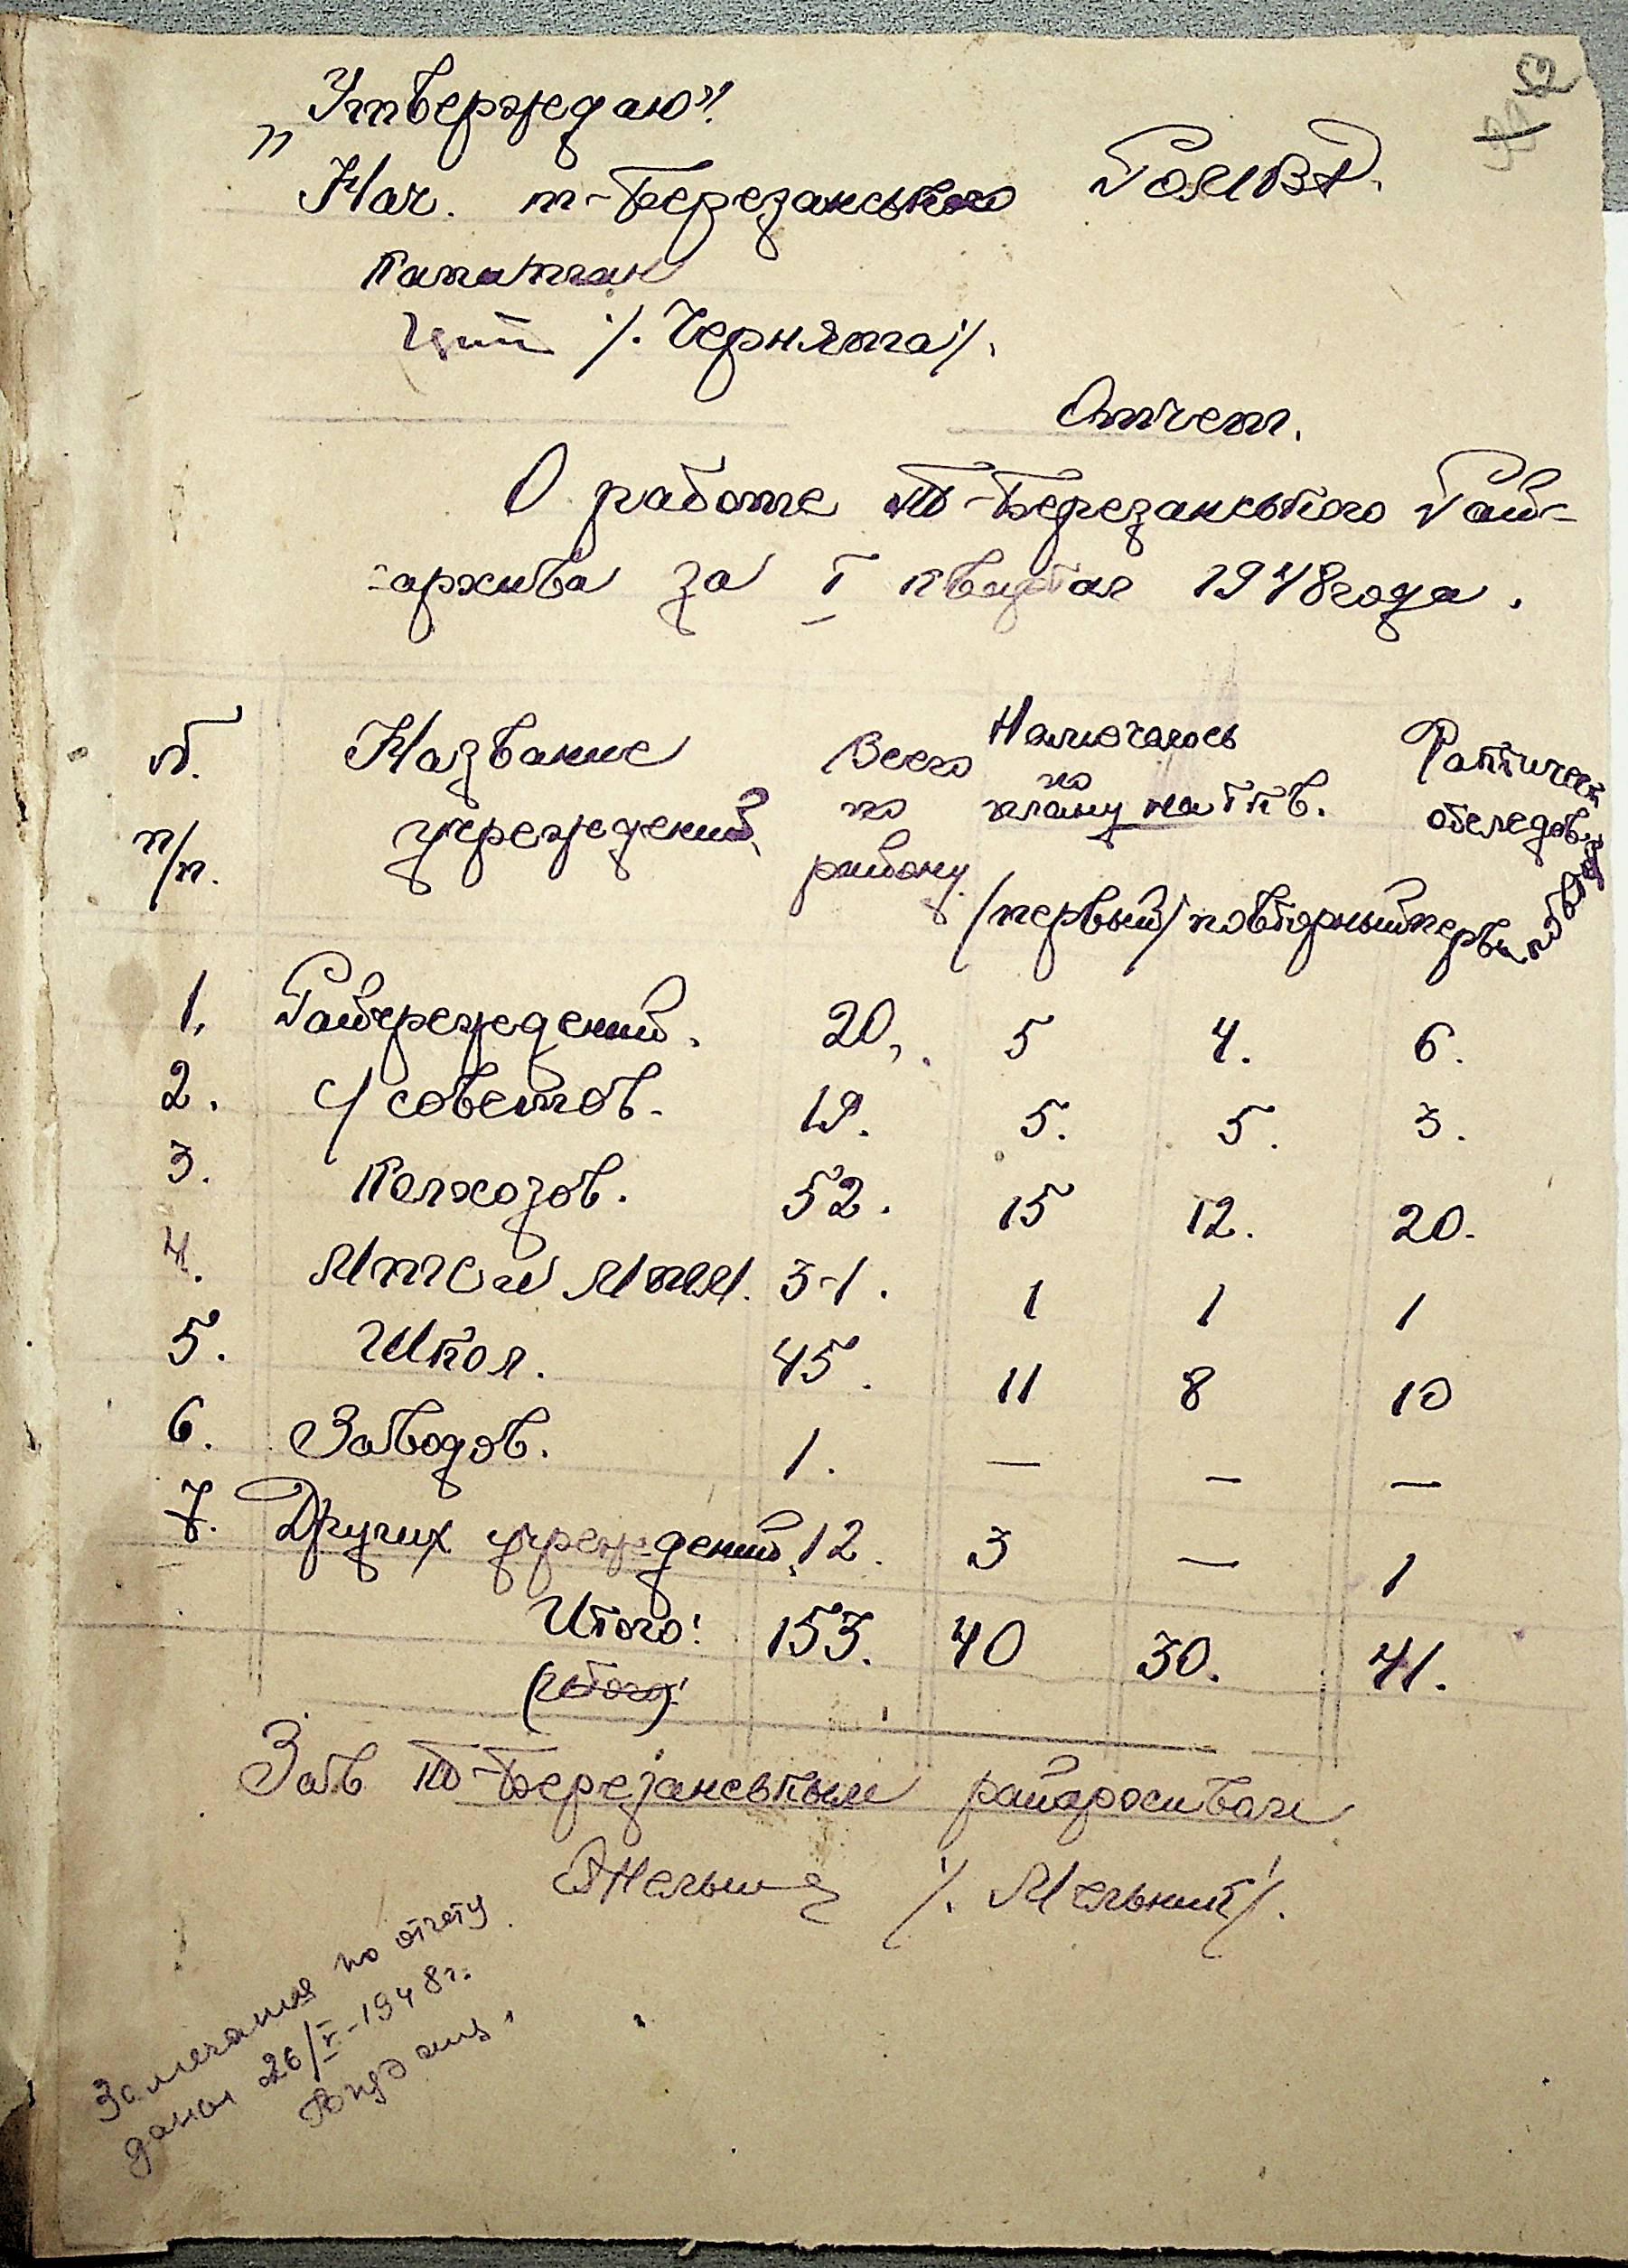 52
„Утверждаю"!
Нач. т-Березанського РОМВД.
Капитан
/. Черняка /.
Отчет.
О работе Т-Березанського Рай-
-архива за I квартал 1948 года.
№ Название Всего Намечалось Фактически
п/п. учреждений, по по плану на I кв. обследов
району. /первый/ повторный перви
1. Райучреждений. 20, 5 4. 6.
2. с/советов. 19. 5. 5. 3.
3. Колхозов. 52. 15 12. 20.
4. Мтс и Мтм. 3-1. 1 1 1
5. Школ. 45. 11 8 10
6. Заводов. 1. — — —
7. Других учреждений, 12. 3 — 1
Итого: 153. 40 30. 41.
(Итого):
Зав Т-Березанськым райархивом
/. Мельник /.
Замечания по отчету
даны 26/V-1948г.